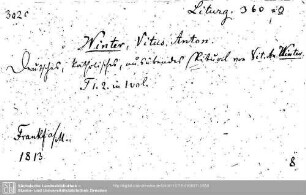 3026
Liturg. 360
Winter, Vitus Anton
Deutsches, katholisches, ausübendes Ritual von Vit. An. Winter.
T 1. 2. in 1 vol.
Frankf. a/M.
1813
8
Sächsische Landesbibliothek -
Staats- und Universitätsbibliothek Dresden